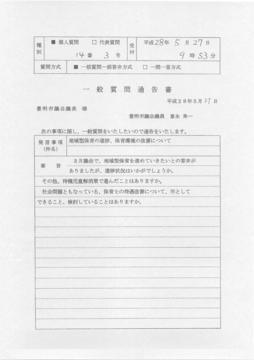 種別 ■ 個人質問 □ 代表質問 受付 平成28年5月27日
14番 3号 9時53分
質問方式 ■ 一般質問一括答弁方式 □ 一問一答方式
一般質問通告書
平成28年5月27日
豊明市議会議長 様
豊明市議会議員
次の事項に関し、一般質問をいたしたいので通告をいたします。
発言事項(件名) 地域型保育の進捗、保育環境の改善について
要旨 3月議会で、地域型保育を進めていきたいとの答弁が
ありましたが、進捗状況はいかがでしょうか。
その他、待機児童解消策で進んだことはありますか。
社会問題ともなっている、保育士の待遇改善について、市として
できること、検討していることはありますか。